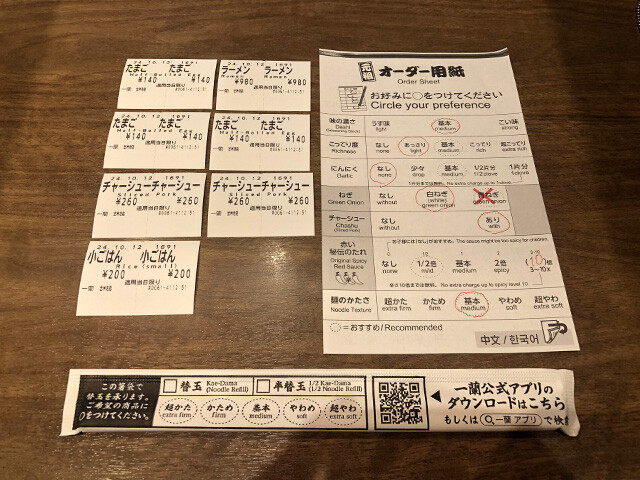 24.10.12 1691
たまご たまご
Half-Boiled Egg
¥140 ¥140
適用当日限り
一蘭
24.10.12 1691
ラーメン ラーメン
Ramen
¥980 ¥980
適用当日限り
一蘭 80061-4112:51
たまご たまご
Half-Boiled Egg
¥140 ¥140
適用当日限り
一蘭
たまご たまご
Half-Boiled Egg
¥140 ¥140
適用当日限り
一蘭
チャーシューチャーシュー
Sliced Pork
¥260 ¥260
適用当日限り
一蘭 80061-4112:51
チャーシューチャーシュー
Sliced Pork
¥260 ¥260
適用当日限り
一蘭 80061-4112:51
24.10.12 1691
小ごはん 小ごはん
Rice(small)
¥200 ¥200
適用当日限り
一蘭 80061-4112:51
元祖 オーダー用紙
Order Sheet
お好みに○をつけてください
Circle your preference
味の濃さ うす味 基本 こい味
Dashi light medium strong
こってり度 なし あっさり 基本 こってり 超こってり
Richness none light medium rich extra rich
にんにく なし 少々 基本 1/2片分 1片分
Garlic none little medium 1/2clove 1clove
ねぎ なし 白ねぎ 青ねぎ
Green Onion without (white) green onion green onion
チャーシュー なし あり
Chashu (Sliced Pork) without with
お子様には「なし」がおすすめ。The sauce might be too spicy for children
赤い秘伝のたれ なし 1/2倍 基本 2倍 (10)倍
Original Spicy Red Sauce none mild medium spicy 3~10x
倍さ10倍までは無料。No extra charge up to spicy level 10.
麺のかたさ 超かた かため 基本 やわめ 超やわ
Noodle Texture extra firm firm medium soft extra soft
=おすすめ/Recommended
中文/한국어
この箸袋で
替玉を承ります。
ご希望の商品に
○をつけてください。
替玉 Kae-Dama (Noodle Refill) 半替玉 1/2 Kae-Dama (1/2 Noodle Refill)
超かた かため 基本 やわめ 超やわ
extra firm firm medium soft extra soft
一蘭公式アプリの
ダウンロードはこちら
もしくは 一蘭 アプリ で検索